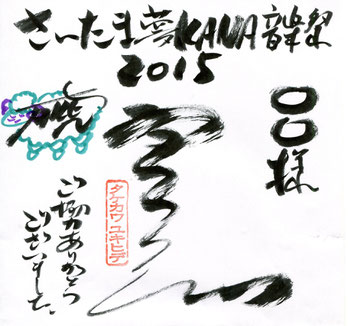 さいたま夢KANA音楽祭
2015
〇〇様
タケカワユキヒデ
ご協力ありがとう
ございました。